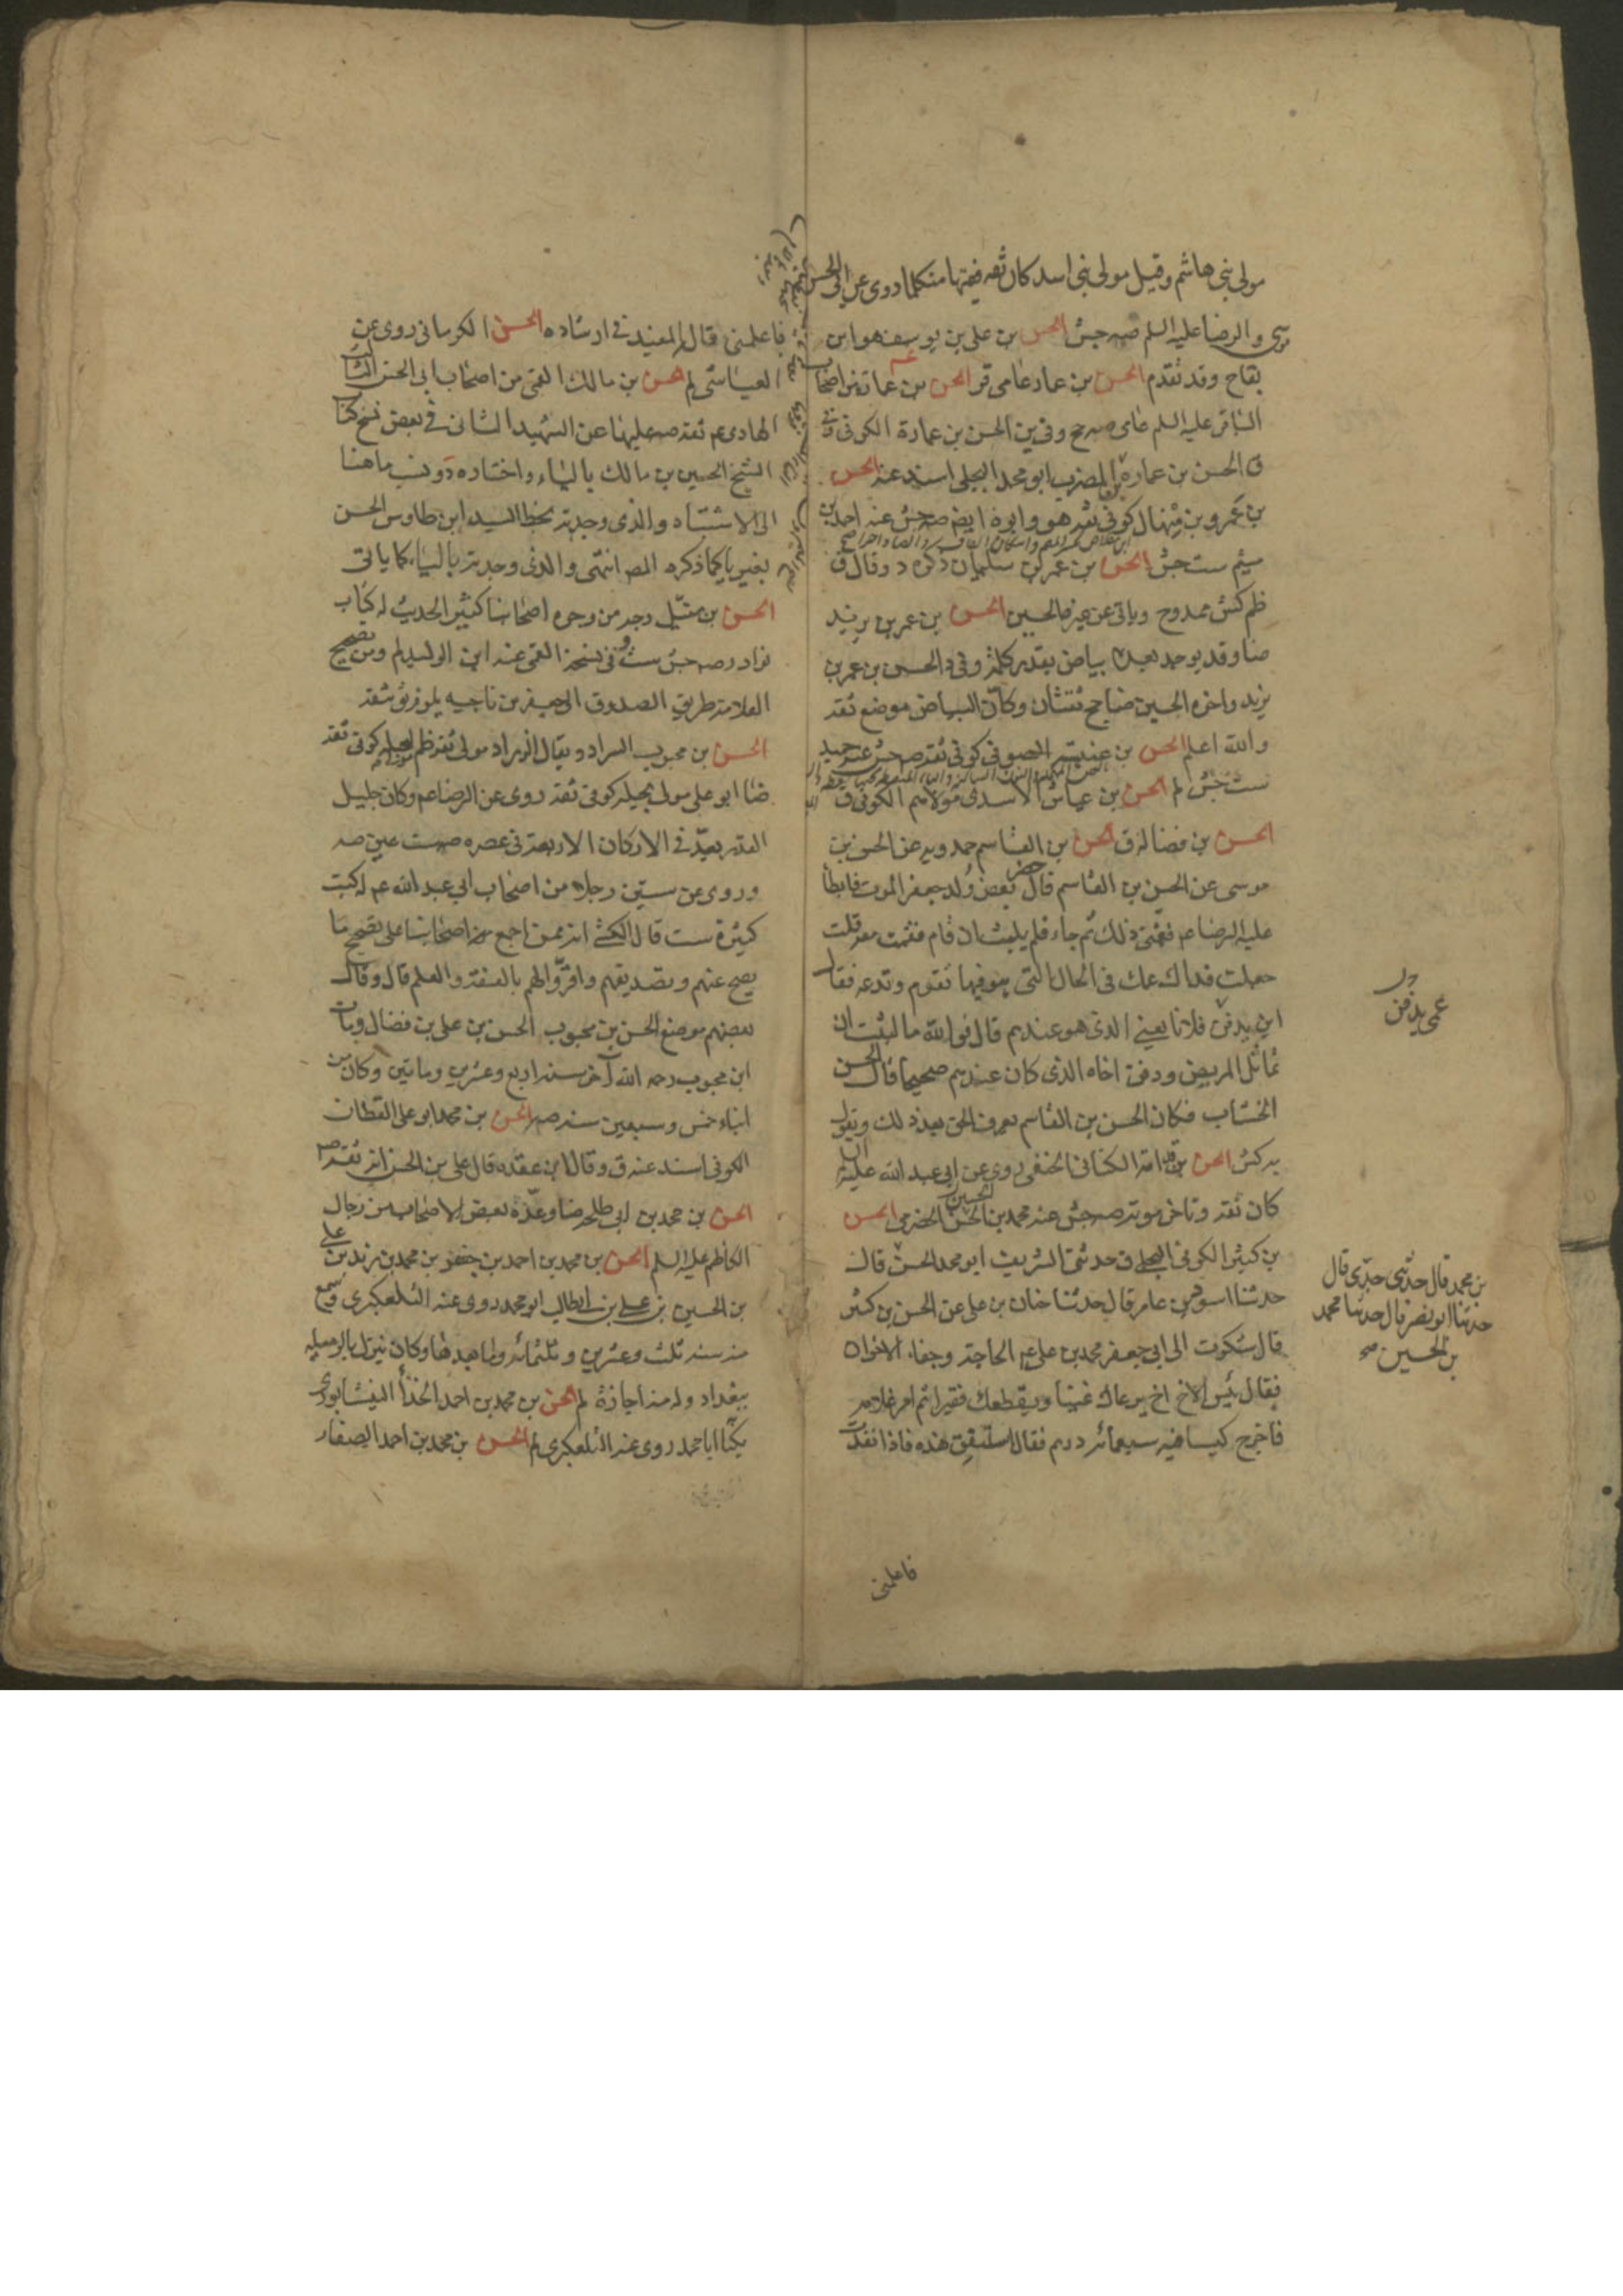 مولى بنى هاشم وقيل مولى بنى اسد كان ثقه فقيها متكلما روى عن ابى الحسن
موسى والرضا عليه السلم صه جش الحسن بن على بن يوسف هو ابن
بقاح وقد تقدم الحسن بن عمار عامى قر الحسن بن عمارة من اصحاب
الباقر عليه السلم عامى صه وفى ين الحسن بن عمارة الكوفى وفى
ق الحسن بن عمارة بن المضرب ابو محمد البجلى اسند عنه الحسن
بن عمرو بن منهال كوفى ثقه هو وابوه ايضا صه جش عنه احمد بن
ميثم ست جش الحسن بن عمر بن سليمان ذكره د وقال ق
ظم كش ممدوح وياتى عن غيره الحسين الحسن بن عمر بن يزيد
ضا وقد يوجد بعده بياض بقدر كلمة وفى د الحسن بن عمر بن
يزيد واخوه الحسين ضا جخ ثقتان وكان البياض موضع ثقه
والله اعلم الحسن بن عنبسة الصوفى كوفى ثقه صه جش عنه حميد
ست جش لم الحسن بن عياش الاسدى مولاهم الكوفى ق
الحسن بن فضاله ق الحسن بن القاسم حمدويه عن الحسن بن
موسى عن الحسن بن القاسم قال حضر بعض ولد جعفر الموت فابطأ
عليه الرضا عم فغمنى ذلك ثم جاء فلم يلبث ان قام فقمت معه قلت
جعلت فداك عمك فى الحال التى هو فيها تقوم وتدعه فقال
عمى يدفن
اين يدفن فلانا يعنى الذى هو عندهم قال فوالله ما لبثت ان
تماثل المريض ودفن اخاه الذى كان عندهم صحيحا قال الحسن
الخشاب فكان الحسن بن القاسم يعرف الحق بعد ذلك ويقول
به كش الحسن بن قدامة الكنانى الحنفى روى عن ابى عبد الله عليه السلم
كان ثقه وتاخر موته صه جش عنه محمد بن الحسين الحضرمى الحسن
بن كثير الكوفى البجلى ق حدثنى الشريف ابو محمد الحسن قال
بن محمد قال حدثنى جدى قال
حدثنا ابو نصر قال حدثنا محمد
بن الحسين صح
حدثنا اسود بن عامر قال حدثنا حنان بن على عن الحسن بن كثير
قال شكوت الى ابى جعفر محمد بن على عم الحاجة وجفاء الاخوان
فقال بئس الاخ اخ يرعاك غنيا ويقطعك فقيرا ثم امر غلامه
فاخرج كيسا فيه سبعمائه درهم فقال استنفق هذه فاذا نفدت
فاعلمنى
فاعلمنى قال المفيد فى ارشاده الحسن الكرمانى روى عن
العياشى لم الحسن بن مالك القمى من اصحاب ابى الحسن الثالث
الهادى عم ثقه صه عليها عن الشهيد الثانى فى بعض نسخ كتاب
الشيخ الحسين بن مالك بالياء واختاره د ونسب ما هنا
الى الاشتباه والذى وجدته بخط السيد ابن طاوس الحسن
بغير ياء كما ذكره المصه انتهى والذى وجدته بالياء كما ياتى
الحسن بن متيل وجه من وجوه اصحابنا كثير الحديث له كتاب
نوادر صه جش ست وفى نسخة القمى عنه ابن الوليد لم ومن تصحيح
العلامة طريق الصدوق الى جعفر بن ناجيه يلوح توثيقه
الحسن بن محبوب السراد ويقال الزراد مولى ثقه ظم مولى بجيله كوفى ثقه
ضا ابو على مولى بجيله كوفى ثقه روى عن الرضا عم وكان جليل
القدر يعد فى الاركان الاربعة فى عصره صه ست عين صه
وروى عن ستين رجلا من اصحاب ابى عبد الله عم له كتب
كثيرة ست قال الكشى انه ممن اجمع اصحابنا على تصحيح ما
يصح عنهم وتصديقهم واقروا لهم بالفقه والعلم قال وقال
بعضهم موضع الحسن بن محبوب الحسن بن على بن فضال ومات
ابن محبوب رحمه الله آخر سنه اربع وعشرين ومأتين وكان من
ابناء خمس وسبعين سنه صه الحسن بن محمد ابو على القطان
الكوفى اسند عنه ق وقال ابن عقده قال على بن الحسن انه ثقه صه
الحسن بن محمد بن ابى طلحه ضا وعده بعض الاصحاب من رجال
الكاظم عليه السلم الحسن بن محمد بن احمد بن جعفر بن محمد بن زيد بن على
بن الحسين بن على بن ابى طالب ابو محمد روى عنه التلعكبرى وسمع
منه سنه ثلث وعشرين وثلثمائه وما بعدها وكان ينزل بالرميله
ببغداد وله منه اجازة لم الحسن بن محمد بن احمد الحذأ النيشابورى
يكنى ابا محمد روى عنه التلعكبرى لم الحسن بن محمد بن احمد الصفار